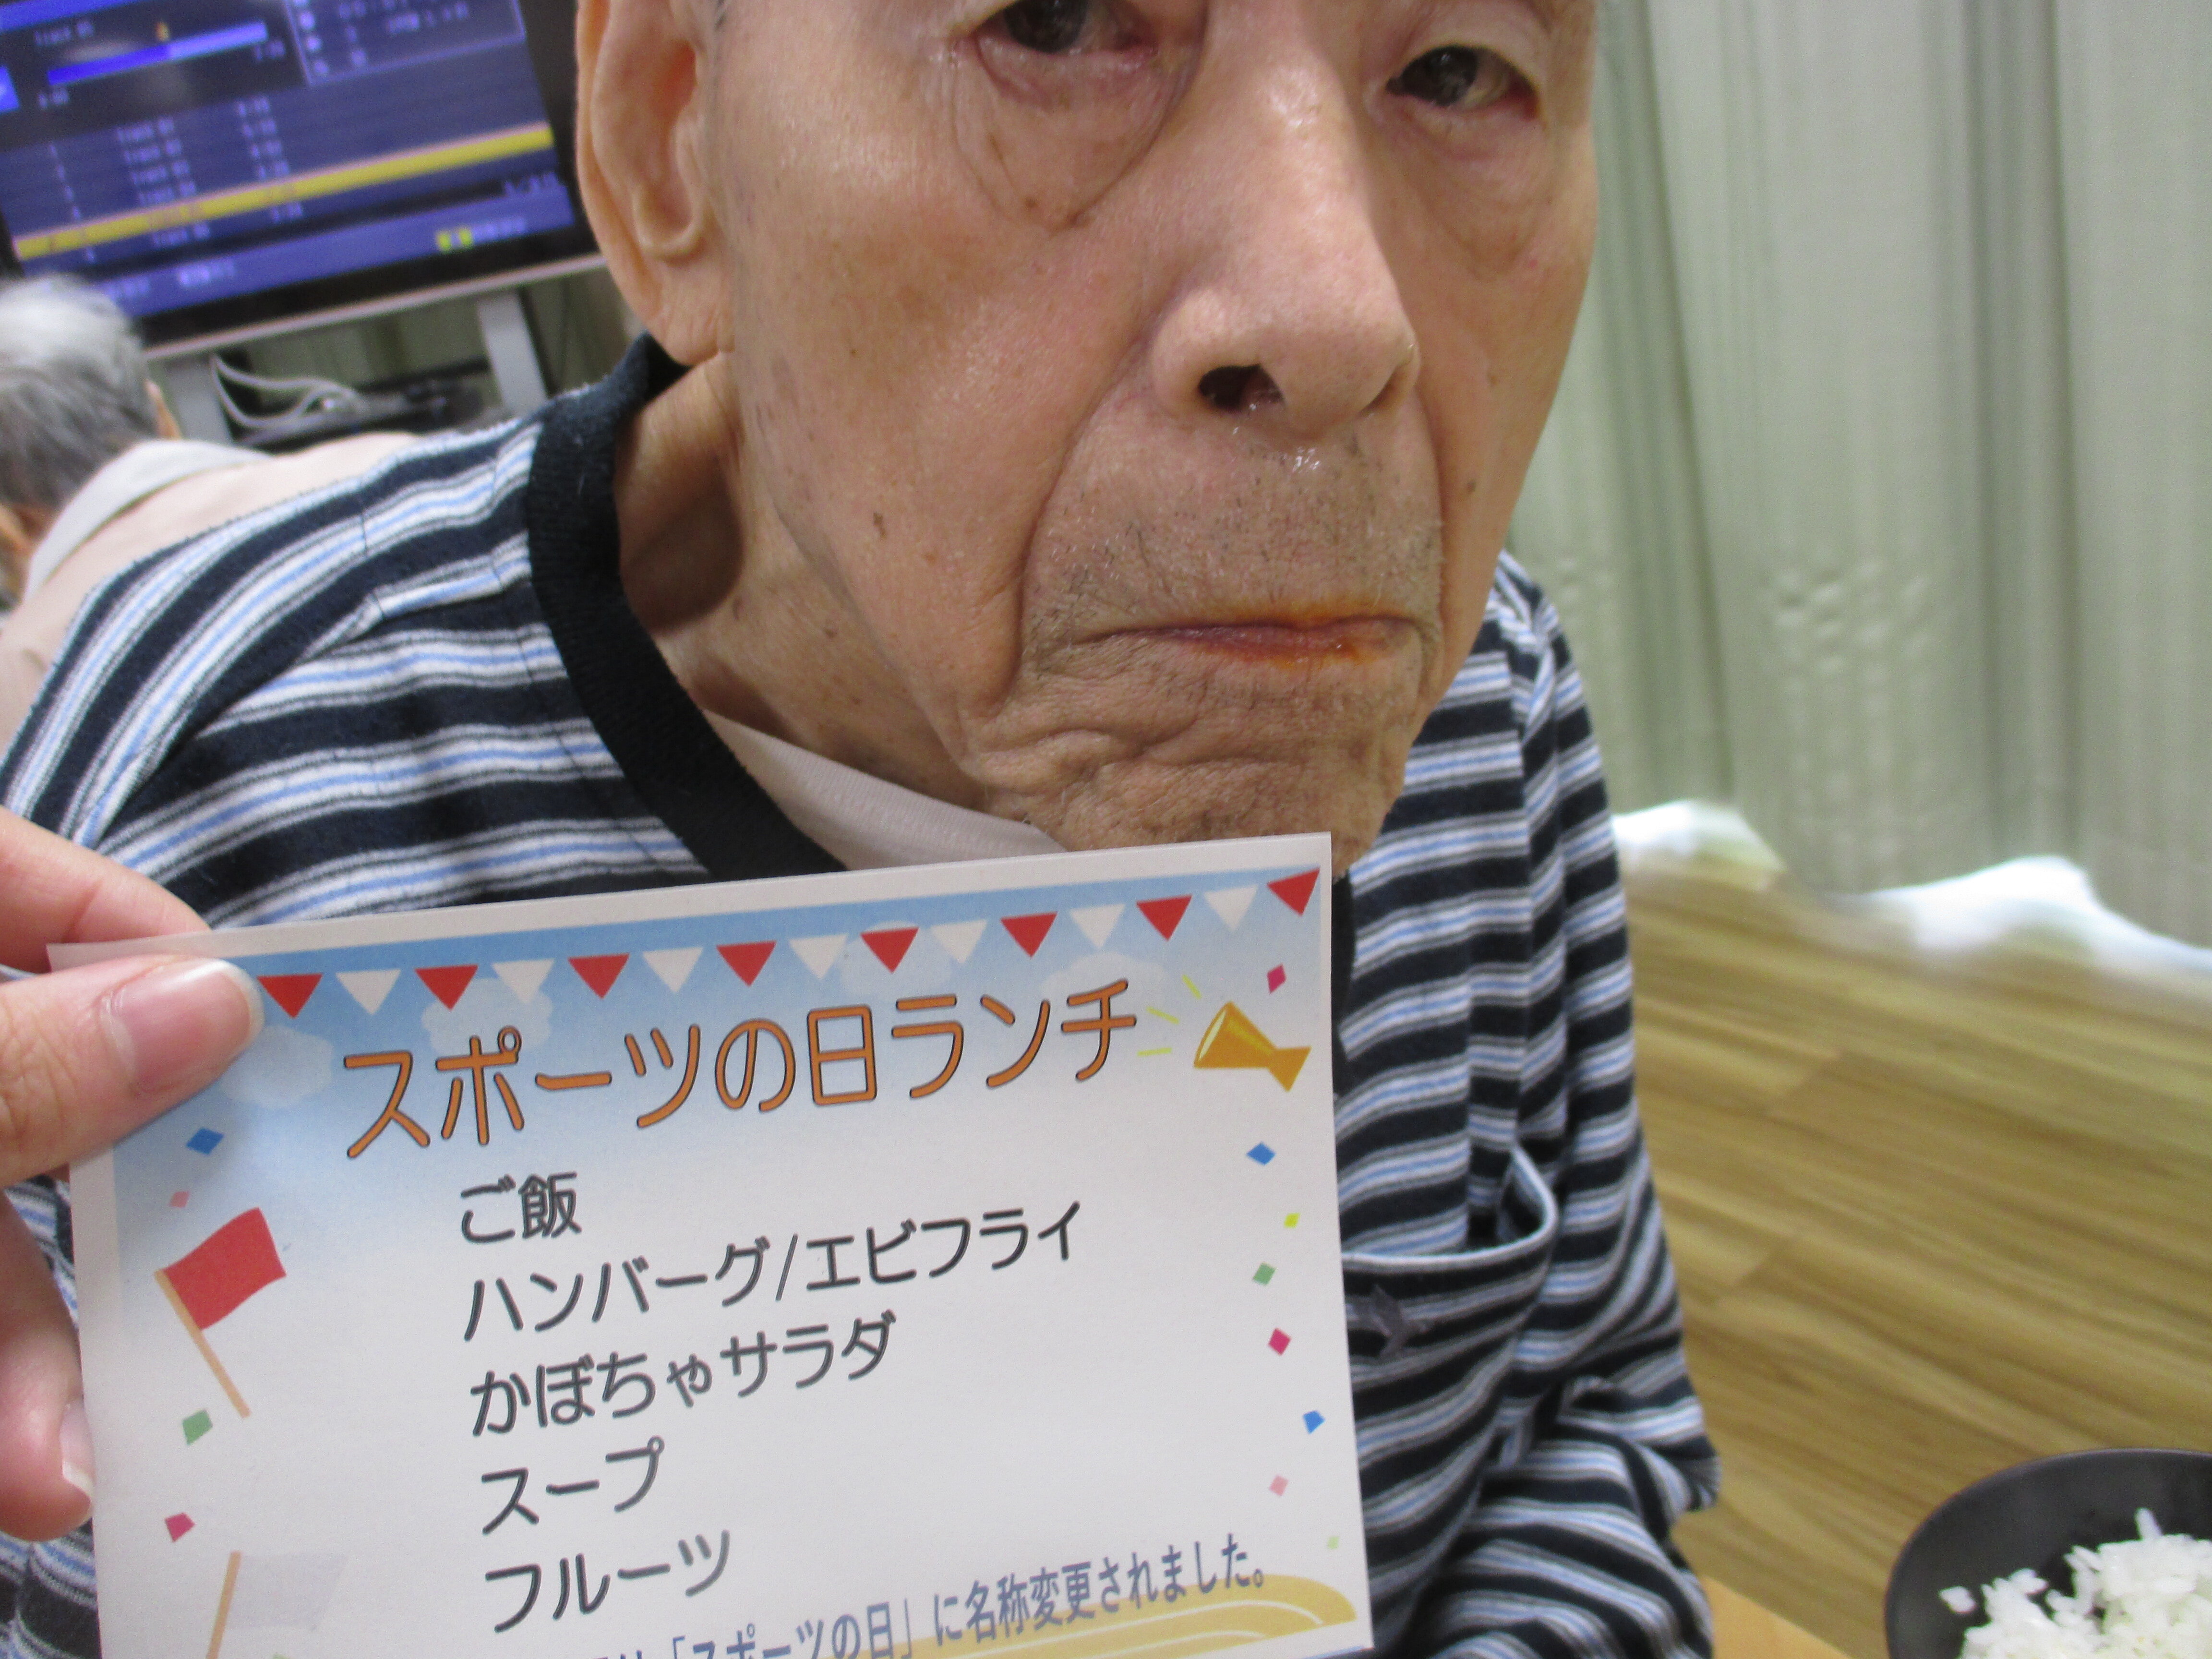 スポーツの日ランチ
ご飯
ハンバーグ/エビフライ
かぼちゃサラダ
スープ
フルーツ
「スポーツの日」に名称変更されました。